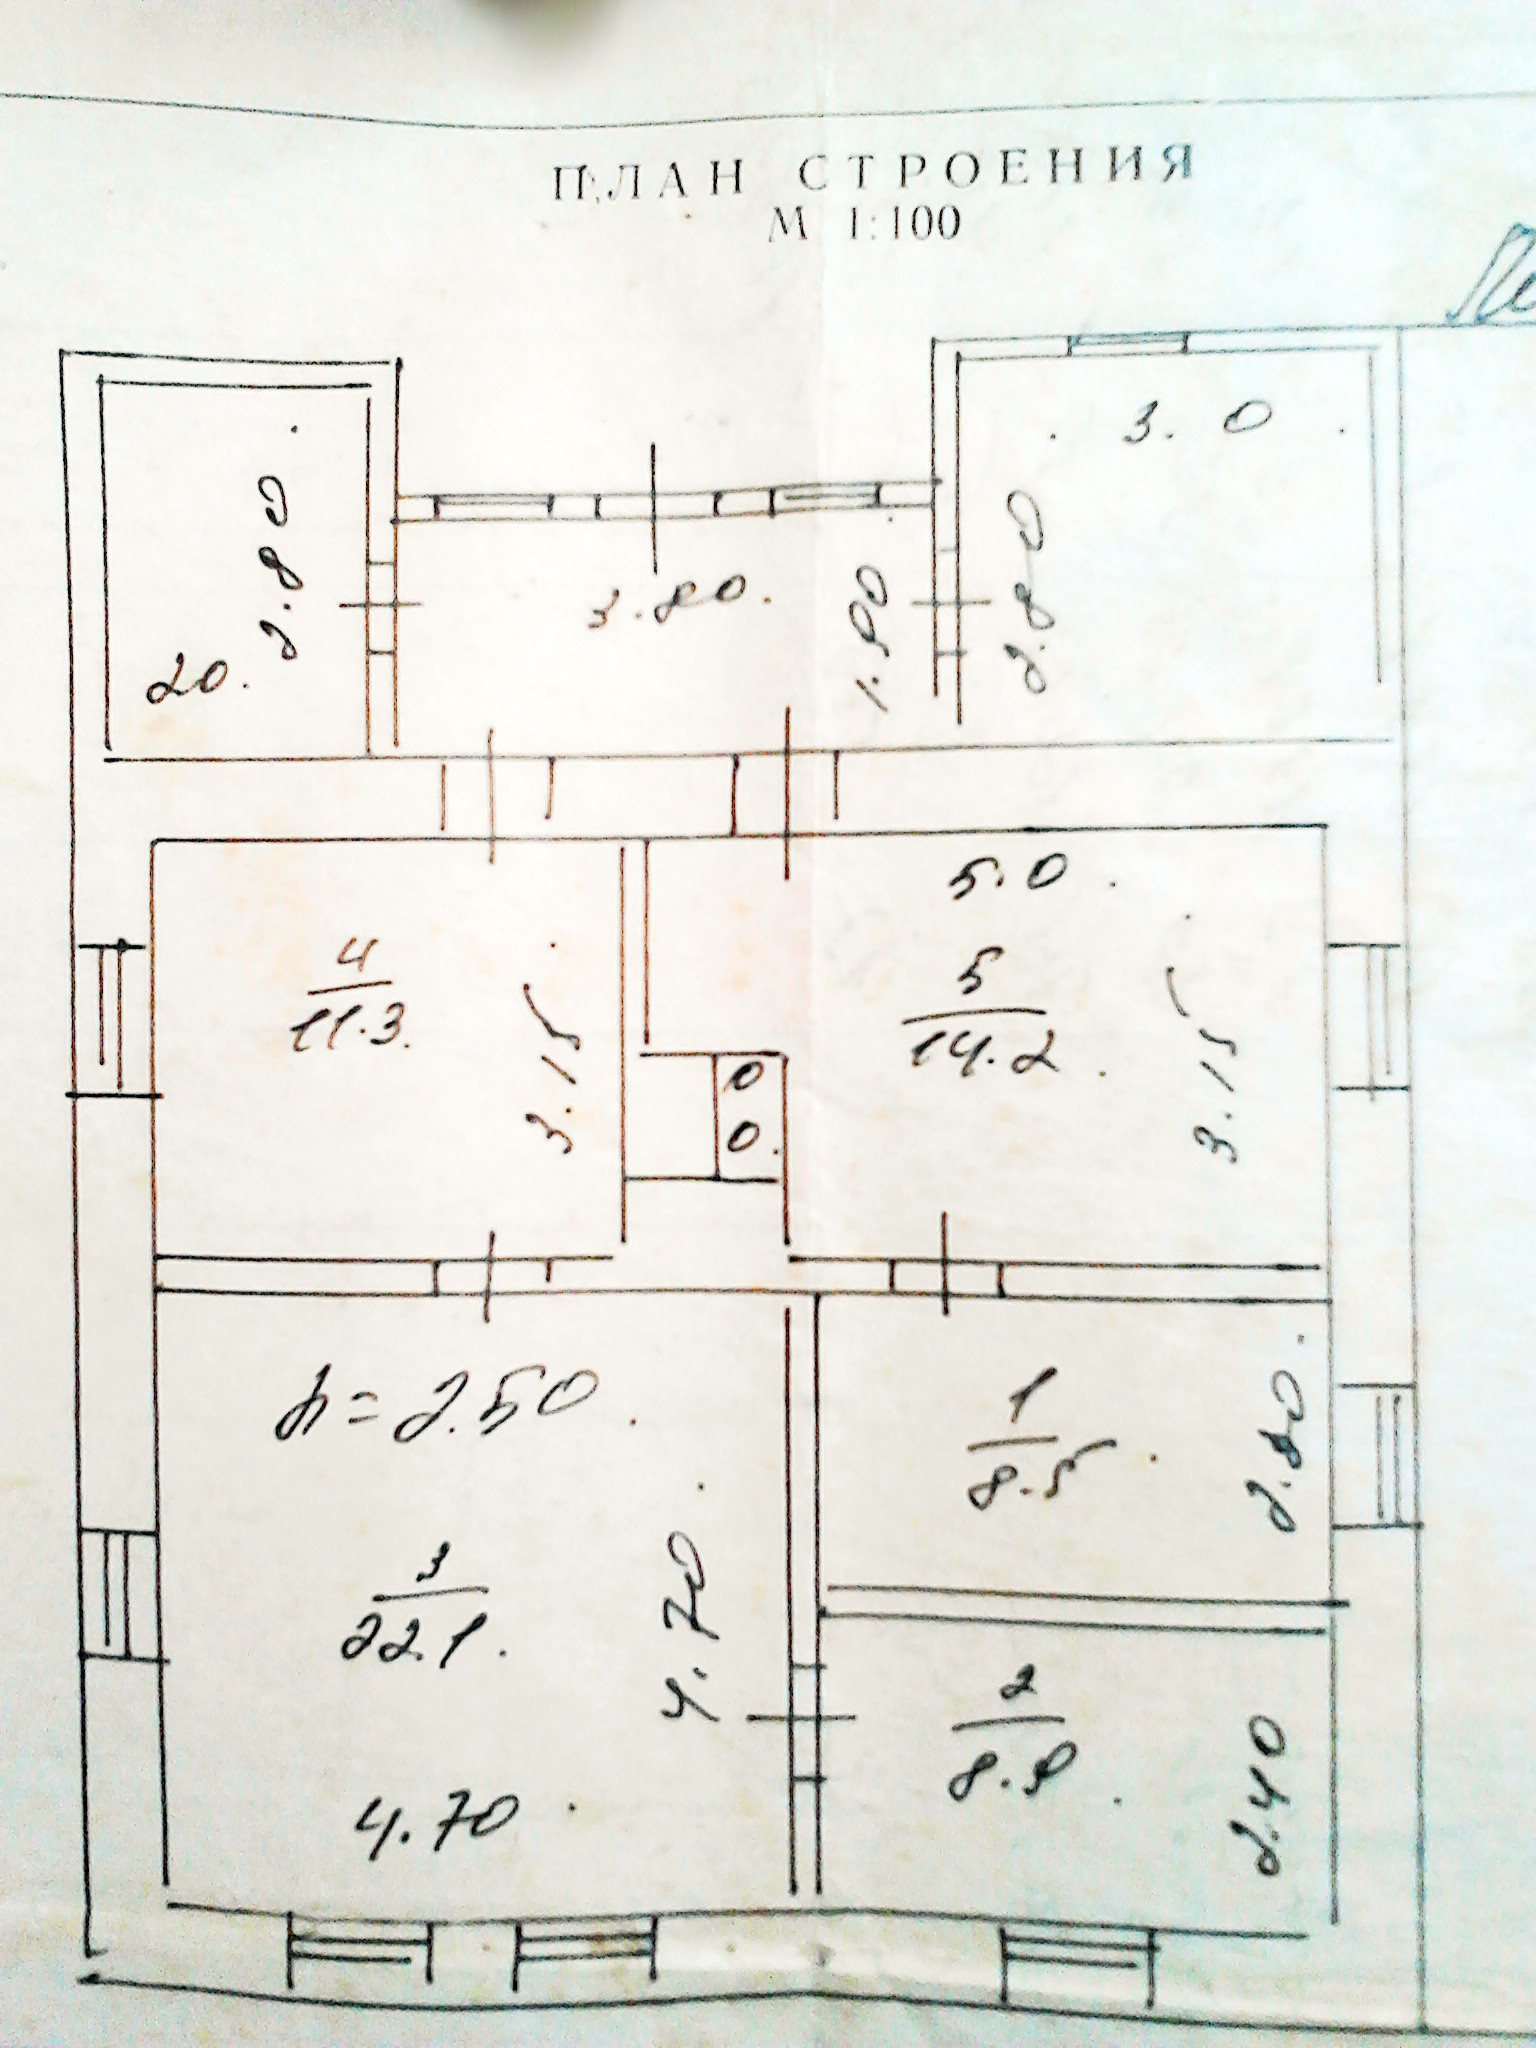 ПЛАН СТРОЕНИЯ
М 1:100
3.0
2.80
3.80.
1.80
2.80
20.
5.0
4
11.3.
3.15
0
0.
5
14.2
3.15
h=2.50
1
8.5
3
22.1
4.70
2
8.9
2.40
4.70